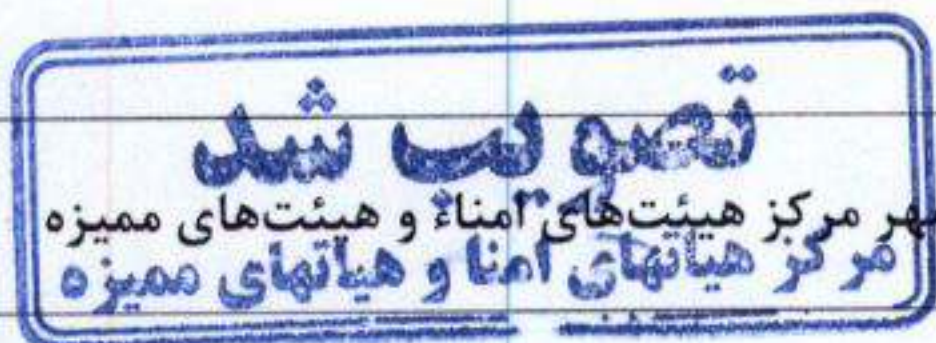 تصویب شد
مهر مرکز هیئت‌های امناء و هیئت‌های ممیزه
مرکز هیاتهای امنا و هیاتهای ممیزه